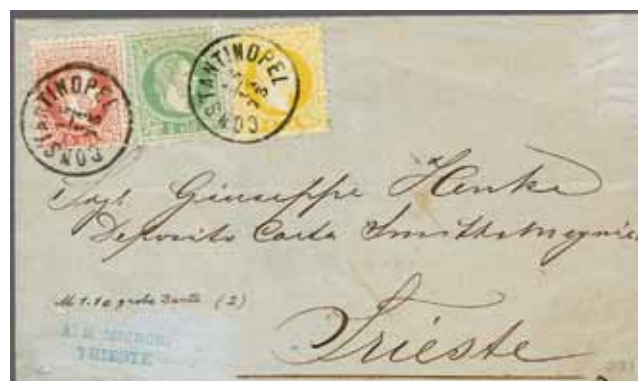 CONSTANTINOPEL
CONSTANTINOPEL
Sigr Giuseppe Henke
Deposito Carta Smith & Meynier
Trieste
M 1. 1a grobe Bart (2)
TRIESTE